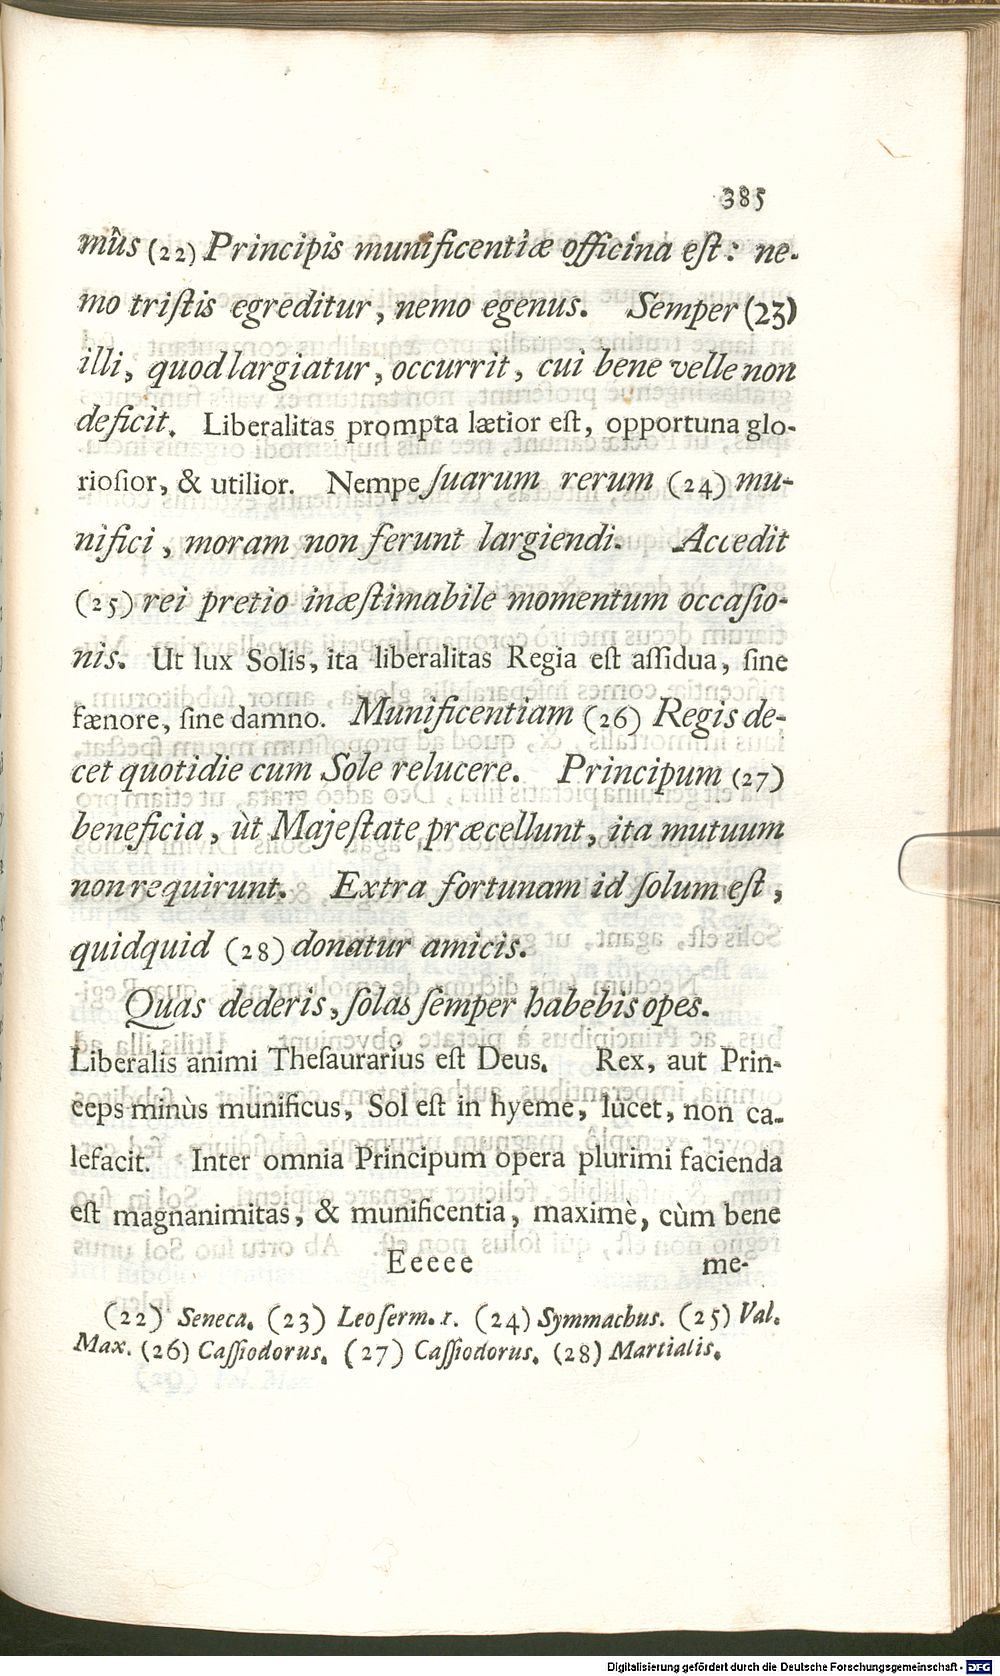 385
mûs (22) Principis munificentiæ officina eſt: ne-
mo triſtis egreditur, nemo egenus. Semper (23)
illi, quod largiatur, occurrit, cui bene velle non
deficit. Liberalitas prompta lætior eſt, opportuna glo-
rioſior, & utilior. Nempe ſuarum rerum (24) mu-
nifici, moram non ferunt largiendi. Accedit
(25) rei pretio inæſtimabile momentum occaſio-
nis. Ut lux Solis, ita liberalitas Regia eſt aſſidua, ſine
fænore, ſine damno. Munificentiam (26) Regis de-
cet quotidie cum Sole relucere. Principum (27)
beneficia, ùt Majeſtate præcellunt, ita mutuum
non requirunt. Extra fortunam id ſolum eſt,
quidquid (28) donatur amicis.
Quas dederis, ſolas ſemper habebis opes.
Liberalis animi Theſaurarius eſt Deus. Rex, aut Prin-
ceps minùs munificus, Sol eſt in hyeme, lucet, non ca-
lefacit. Inter omnia Principum opera plurimi facienda
eſt magnanimitas, & munificentia, maximè, cùm bene
Eeeee me-
(22) Seneca. (23) Leo ſerm. 1. (24) Symmachus. (25) Val.
Max. (26) Caſſiodorus. (27) Caſſiodorus. (28) Martialis.
Digitalisierung gefördert durch die Deutsche Forschungsgemeinschaft - DFG